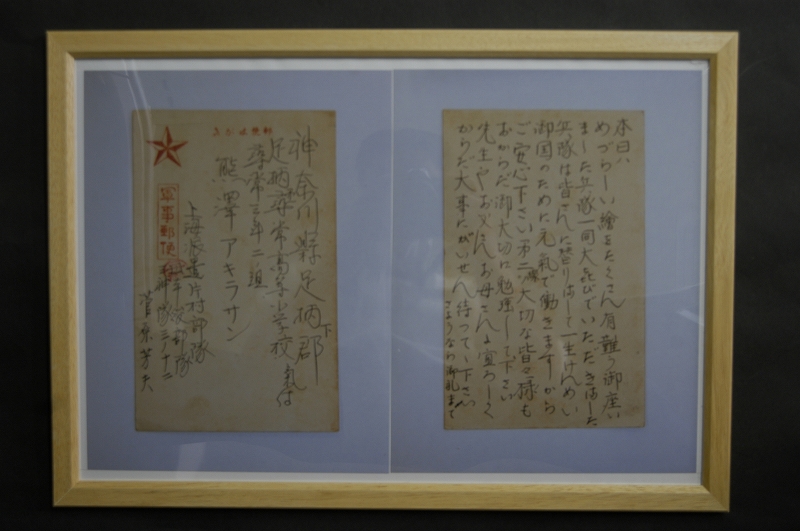 郵便はがき
軍事郵便
神奈川縣足柄下郡
足柄尋常高等小学校
尋常三年二組
熊澤アキラサン
上海派遣片村部隊
菅原芳夫
本日ハ
めづらしい繪をたくさん有難う御座い
ました兵隊一同大喜びでいただきました
兵隊は皆さんに登りまして一生けんめい
御国のために元氣で働きますから
ご安心下さい第二の大切な皆々様も
おからだ御大切に勉強して下さい
先生やお父さんお母さんに宜ろしく
からだ大事に
待つてゝ下さい
さようなら御礼まで